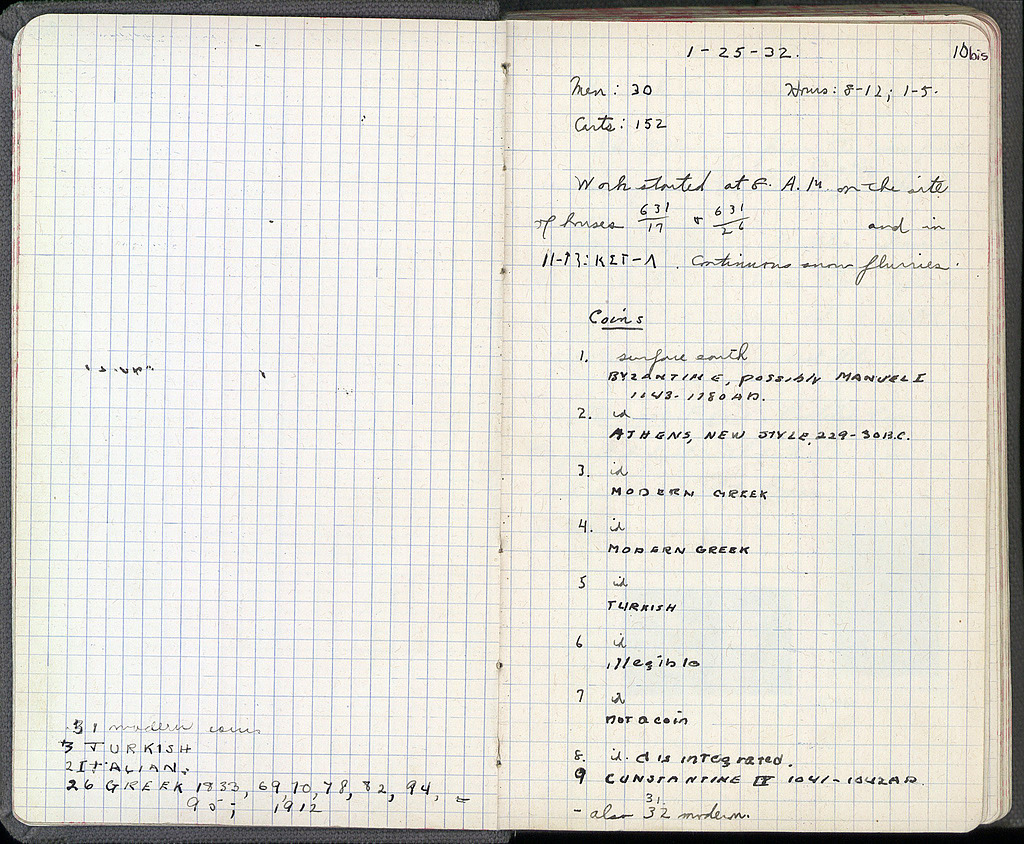 31 modern coins
3 TURKISH
2 ITALIAN.
26 GREEK 1833, 69, 70, 78, 82, 94, =
95; 1912
1-25-32.
10bis
Men: 30 Hours: 8-12; 1-5.
Carts: 152
Work started at 8. A.M. on the site
of houses 631/17 & 631/26 and in
11-13: KET-Λ. Continuous snow flurries.
Coins
1. surface earth
BYZANTINE, possibly MANUEL I
1143-1180 AD.
2. id
ATHENS, NEW STYLE, 229-30 B.C.
3. id
MODERN GREEK
4. id
MODERN GREEK
5 id
TURKISH
6 id
illegible
7 id
not a coin
8. id. disintegrated.
9 CONSTANTINE IX 1041-1042 AD.
31
- also 32 modern.